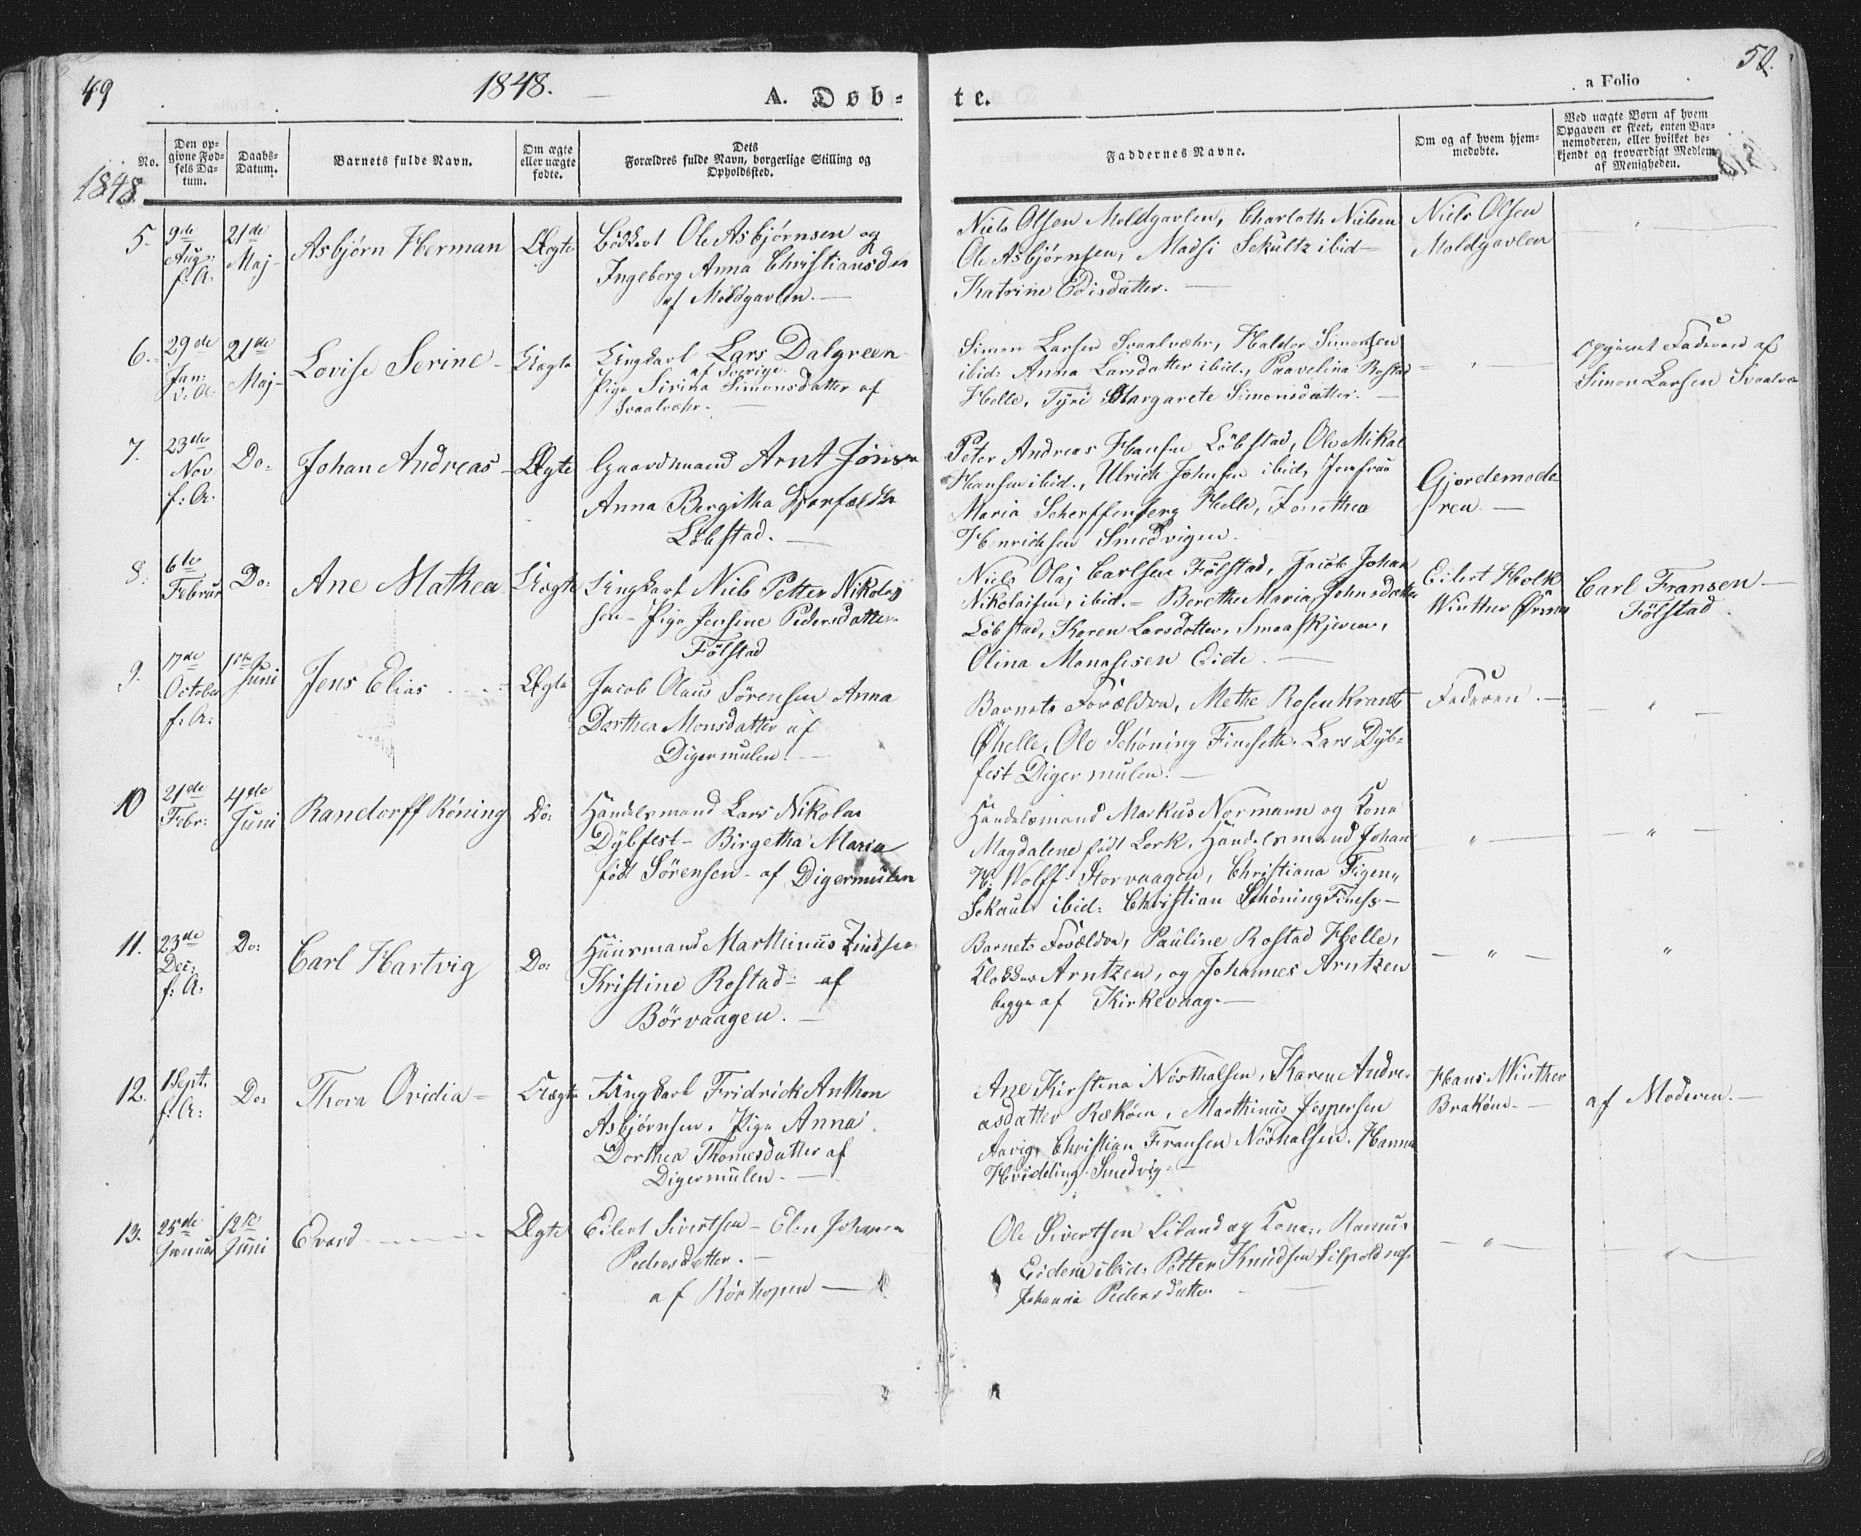 49
1848.
A. Døb-
te.
a Folio
50.
No.
Den op-
givne Fød-
sels Da-
tum.
Daabs-
Datum.
Barnets fulde Navn.
Om ægte
eller uægte
fødte.
Dets
Forældres fulde Navn, borgerlige Stilling og
Opholdssted.
Faddernes Navne.
Om og af hvem hjem-
medøbte.
Ved uægte Børn af hvem
Opgaven er skeet, enten Bar-
nemoderen, eller hvilket be-
kjendt og troværdigt Medlem
af Menigheden.
1848.
5.
9de
Aug:
f:A:
21de
Maj
Asbjørn Herman
Ægte
Ole Asbjørnsen og
Ingeborg Anna Christiansda
af Moldgavlen.
Niels Olsen Moldgavlen, Charloth Nielsen
Ole Asbjørnsen, Madsi Schultz ibid
Katrine Edisdatter.
Niels Olsen
Moldgavlen
6.
29de
Jan:
d: A.
21de
Maj
Lovise Serine
Uægte
Ungkarl Lars Dalgreen
af Sverige
Pige Sirina Simonsdatter af
Svaalvær.
Simon Larsen Svaalvær, Haldor Simonsen
ibid: Anna Larsdatter ibid., Paavelina Rostad
Helle, Tyri Margarete Simonsdatter.
"
opgivet Faderen af
Simon Larsen Svaalvæ
7.
23de
Nov
f: A.
Do:
Johan Andreas
Ægte
Gaardmand Arnt Jons
Anna Bergitha
Løbstad.
Peter Andreas Hansen Løbstad, Ole Mikal
Hansen ibid., Ulrich Johnsen ibid, Jomfrue
Maria Scherffenberg Helle, Fonethea
Henrichsen Smedvigen.
Gjordemode-
ren.
8.
6te
Februar
Do:
Ane Mathea
Uægte
Ungkarl Niels Petter Nikolai
sen - Pige Jensine Pedersdatter
Følstad
Niels Olaj Carlsen Følstad, Jacob Johan
Nikolaisen, ibid. - Berethe Maria Johnsdatter
Løbstad, Karen Larsdatter, Smaaskjeren,
Olina Monasesen Eide.
Eilert Holk
Winther
Carl Fransen
Følstad
9.
17de
October
f: A:
1ste
Juni
Jens Elias
Ægte
Jacob Olaus Sørensen Anna
Dorthea Monsdatter af
Digermulen.
Barnets Forældre, Methe Rosenkrants
Øhelle, Ole Schøning Finsæth. Lars Dyb-
fest Digermulen.
Faderen.
"
10
21de
Febr:
4de
Juni
Randorff Røning
Do:
Handelsmand Lars Nikolai
Dybfest - Birgetha Maria
født Sørensen - af Digermulen
Handelsmand Markus Normann og Kona
Magdalene født Lork, Handelsmand Johan
H: Wolff Storvaagen, Christiana Figen„
Sckau ibid: Christian Schøning Finsæ
"
"
11.
23de
Dec:
f: A.
Do:
Carl Hartvig
Do:
Huusmand Marthinus
Kristine Rostad - af
Børvaagen.
Barnets Forældre, Pauline Rostad Helle,
Klokker Arntzen, og Johannes Arntzen
begge af Kirkevaag.
"
"
12.
1 Sept.
f: A:
Do:
Thora Ovidia
Uægte
Ungkarl Fridrick Anthon
Asbjørnsen, Pige Anna
Dorthea Thomesdatter af
Digermulen.
Ane Kirstina Nøsthalsen, Karen Andre-
asdatter Rækøen, Marthinus Jespersen
Christian Fransen Nøshalsen, Hanna
Hvideling Smedvig.
Hans Winther
Brakøen.
af Moderen.
13.
25de
Januar
12te
Juni
Evard
Ægte
Eilert Sivertsen - Elen Johanna
Pedersdatter.
af Rørhopen
Ole Sivertsen Liland og Kone, Rasmus
Eidem ibid: Petter Knudsen
Johanna Pedersdatter
"
"